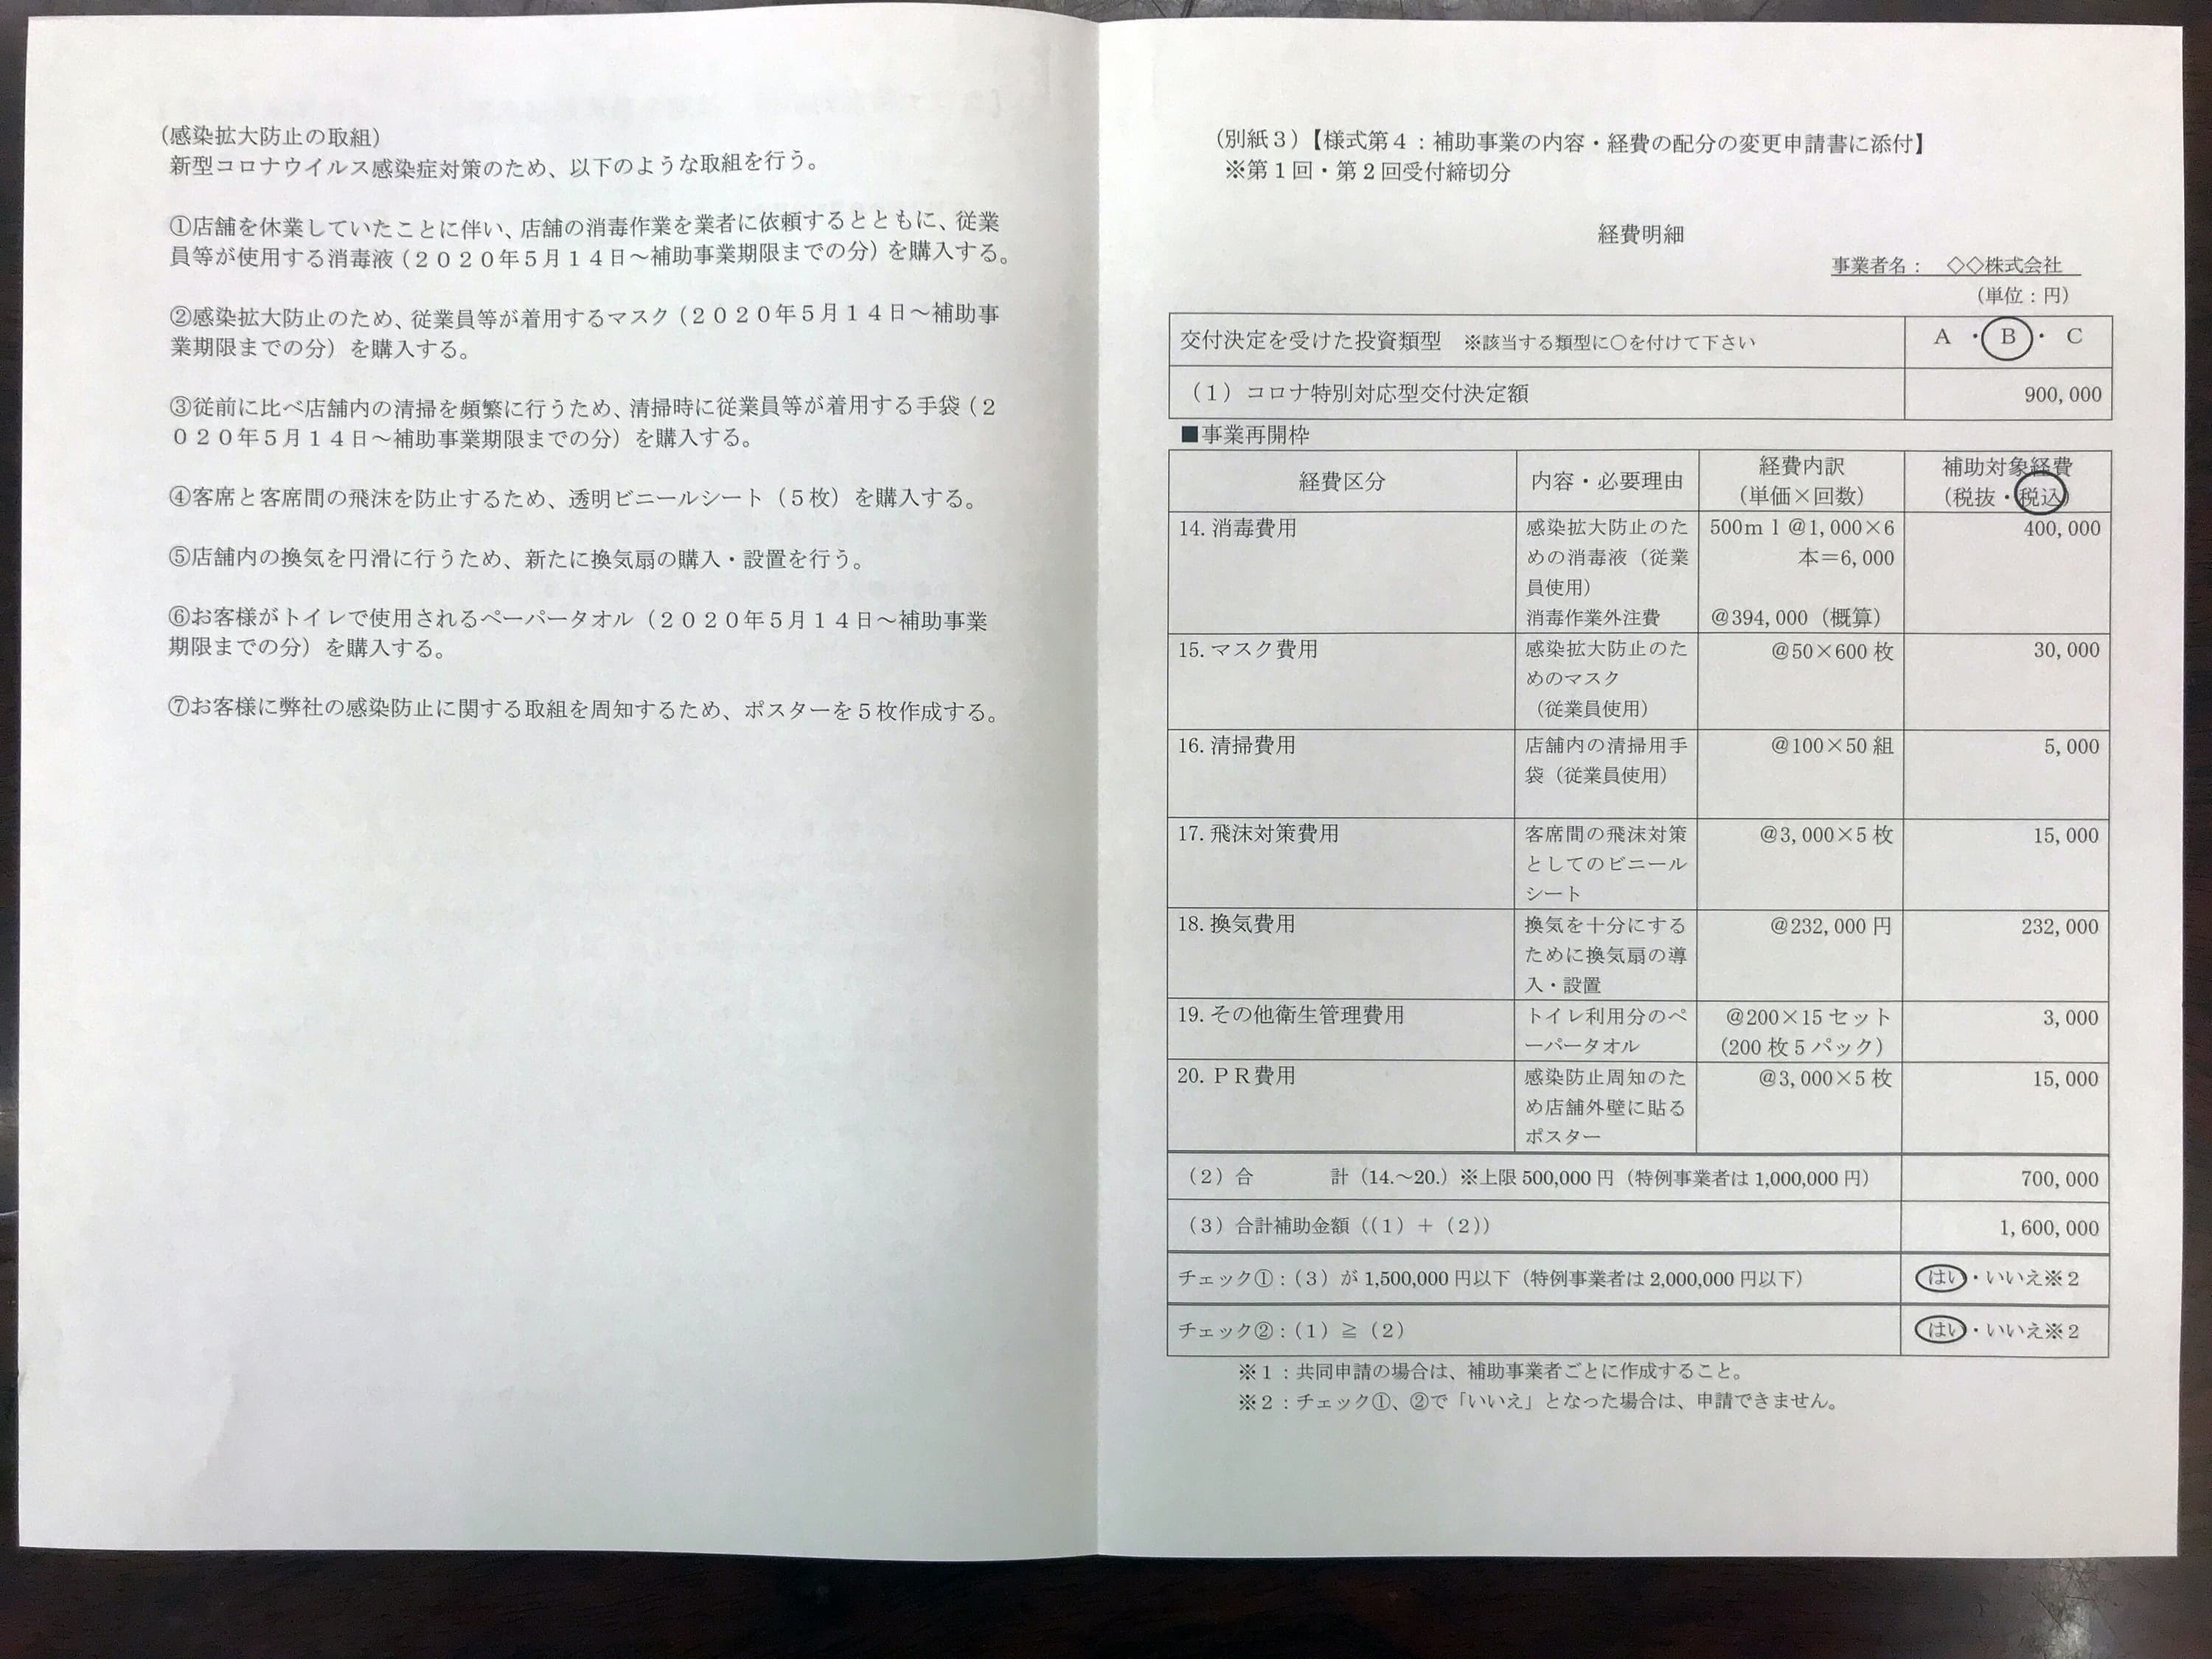 （感染拡大防止の取組）
新型コロナウイルス感染症対策のため、以下のような取組を行う。
①店舗を休業していたことに伴い、店舗の消毒作業を業者に依頼するとともに、従業
員等が使用する消毒液（２０２０年５月１４日～補助事業期限までの分）を購入する。
②感染拡大防止のため、従業員等が着用するマスク（２０２０年５月１４日～補助事
業期限までの分）を購入する。
③従前に比べ店舗内の清掃を頻繁に行うため、清掃時に従業員等が着用する手袋（２
０２０年５月１４日～補助事業期限までの分）を購入する。
④客席と客席間の飛沫を防止するため、透明ビニールシート（５枚）を購入する。
⑤店舗内の換気を円滑に行うため、新たに換気扇の購入・設置を行う。
⑥お客様がトイレで使用されるペーパータオル（２０２０年５月１４日～補助事業
期限までの分）を購入する。
⑦お客様に弊社の感染防止に関する取組を周知するため、ポスターを５枚作成する。
（別紙３）【様式第４：補助事業の内容・経費の配分の変更申請書に添付】
※第１回・第２回受付締切分
経費明細
事業者名： ◇◇株式会社
（単位：円）
交付決定を受けた投資類型 ※該当する類型に○を付けて下さい A ・ B ・ C
（１）コロナ特別対応型交付決定額 900,000
■事業再開枠
経費区分 内容・必要理由 経費内訳（単価×回数） 補助対象経費（税抜・税込）
14.消毒費用 感染拡大防止のた 500ｍｌ@1,000×6 400,000
めの消毒液（従業 本＝6,000
員使用）
消毒作業外注費 @394,000（概算）
15.マスク費用 感染拡大防止のた @50×600 枚 30,000
めのマスク
（従業員使用）
16.清掃費用 店舗内の清掃用手 @100×50 組 5,000
袋（従業員使用）
17.飛沫対策費用 客席間の飛沫対策 @3,000×5 枚 15,000
としてのビニール
シート
18.換気費用 換気を十分にする @232,000 円 232,000
ために換気扇の導
入・設置
19.その他衛生管理費用 トイレ利用分のペ @200×15 セット 3,000
ーパータオル （200 枚 5 パック）
20.ＰＲ費用 感染防止周知のた @3,000×5 枚 15,000
め店舗外壁に貼る
ポスター
（２）合 計（14.～20.）※上限 500,000 円（特例事業者は 1,000,000 円） 700,000
（３）合計補助金額（（１）＋（２）） 1,600,000
チェック①：（３）が 1,500,000 円以下（特例事業者は 2,000,000 円以下） はい・いいえ※２
チェック②：（１）≧（２） はい・いいえ※２
※１：共同申請の場合は、補助事業者ごとに作成すること。
※２：チェック①、②で「いいえ」となった場合は、申請できません。